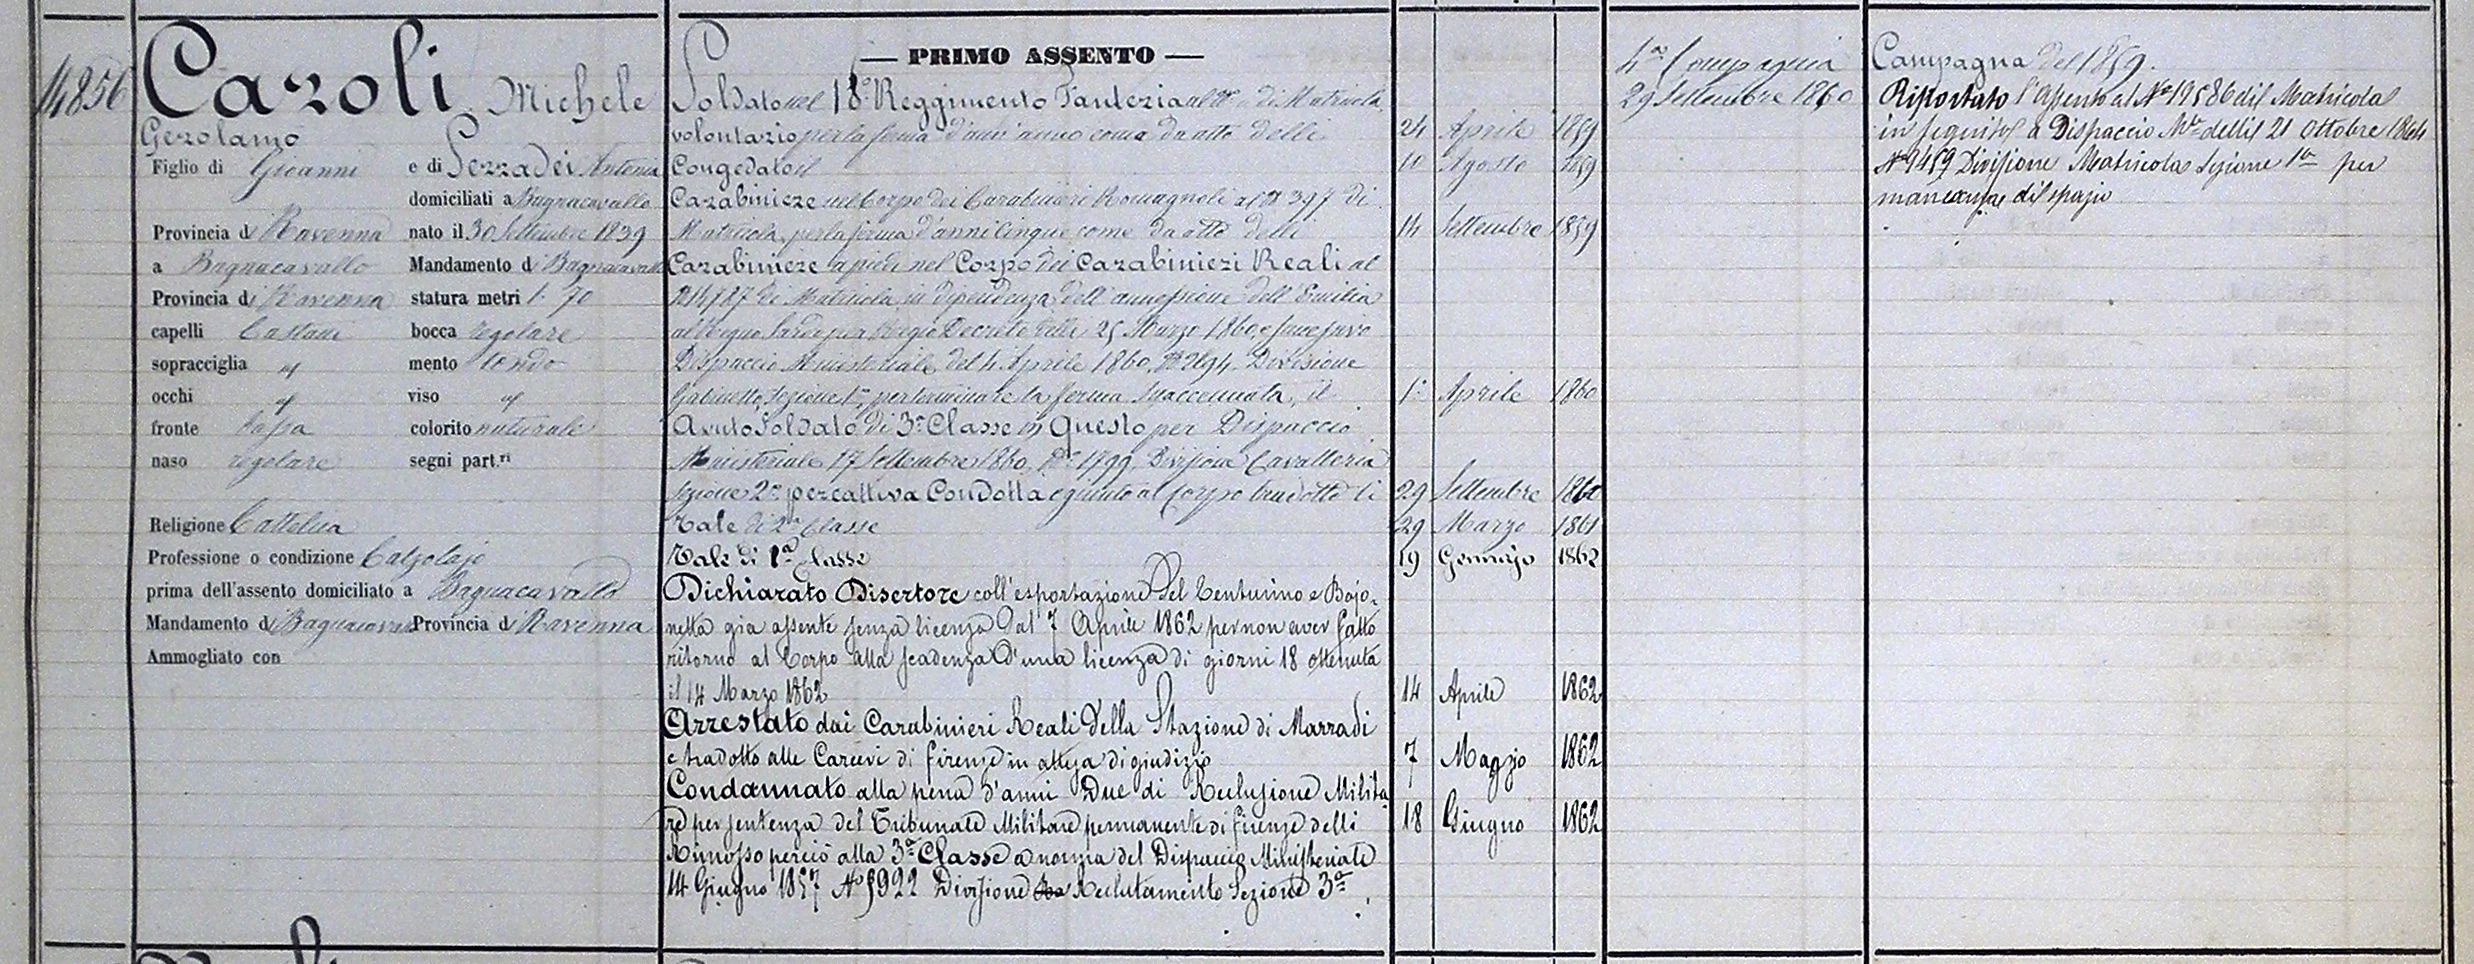 14856
Caroli Michele
Gerolamo
Figlio di Gioanni e di Serradei Antonia
domiciliati a Bagnacavallo
Provincia di Ravenna nato il 30 Settembre 1839
a Bagnacavallo Mandamento di Bagnacavallo
Provincia di Ravenna statura metri 1. 70
capelli Castani bocca regolare
sopracciglia id mento tondo
occhi id viso id
fronte bassa colorito naturale
naso regolare segni part.ri
Religione Cattolica
Professione o condizione Calzolajo
prima dell'assento domiciliato a Bagnacavallo
Mandamento di Bagnacaval Provincia di Ravenna
Ammogliato con
— PRIMO ASSENTO —
Soldato nel 18º Reggimento Fanteria al Nº di Matricola
volontario per la ferma d'un'anno come da atto delli 24 Aprile 1859
Congedato il 10 Agosto 1859
Carabiniere nel Corpo dei Carabinieri Romagnoli al Nº 397 di
Matricola, per la ferma d'anni cinque come da atto delli 14 Settembre 1859
Carabiniere a piedi nel Corpo dei Carabinieri Reali al
Nº 14727 di Matricola in dipendenza dell'annessione dell'Emilia
al Regno Sardo per Regio Decreto delli 25 Marzo 1860, e successivo
Dispaccio Ministeriale, del 4 Aprile 1860, Nº 2194, Divisione
Gabinetto, Sezione 1ª, per terminare la ferma suaccennata, il 1º Aprile 1860
Avuto Soldato di 3ª Classe in Questo per Dispaccio
Ministeriale 17 Settembre 1860, Nº 1799, Divisione Cavalleria
Sezione 2ª per cattiva Condotta e giunto al Corpo tradotto li 29 Settembre 1860
Tale di 2ª Classe 29 Marzo 1861
Tale di 1ª Classe 19 Gennajo 1862
Dichiarato Disertore coll'esportazione del Centurino e Bajo-
netta già assente senza licenza dal 7 Aprile 1862 per non aver fatto
ritorno al Corpo alla scadenza d'una licenza di giorni 18 ottenuta
il 14 Marzo 1862 14 Aprile 1862
Arrestato dai Carabinieri Reali della Stazione di Marradi
e tradotto alle Carceri di Firenze in attesa di giudizio 7 Maggio 1862
Condannato alla pena d'anni Due di Reclusione Milita
re per sentenza del Tribunale Militare permanente di Firenze delli 18 Giugno 1862
Rimosso perciò alla 3ª Classe a norma del Dispaccio Ministeriale
14 Giugno 1857 Nº 5922 Divisione Reclutamento Sezione 3ª
4ª Compagnia
29 Settembre 1860
Campagna del 1859.
Riportato l'assento al Nº 19586 di Matricola
in seguito a Dispaccio Mle delli 21 Ottobre 1864
Nº 9459 Divisione Matricola Sezione 1ª per
mancanza di spazio